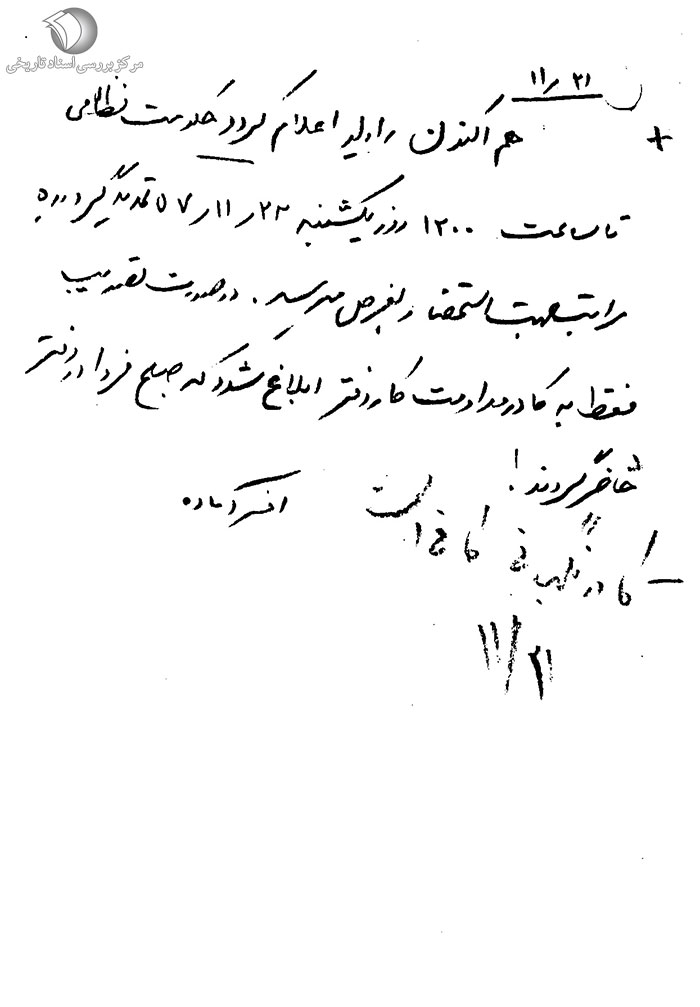 مرکز بررسی اسناد تاریخی
۲۱ر۱۱
+ هم اکنون رادیو اعلام کرد حکومت نظامی
تا ساعت ۱۲۰۰ روز یکشنبه ۲۲ر۱۱ر۵۷ تمدید گردیده
مراتب جهت استحضار بعرض میرسد. در صورت تصویب
فقط به کادر مداومت کار دفتر ابلاغ شود که صبح فردا در دفتر
حاضر گردند!
افسر آماده
— کادر نگهبانی کافی است
۲۱/۱۱